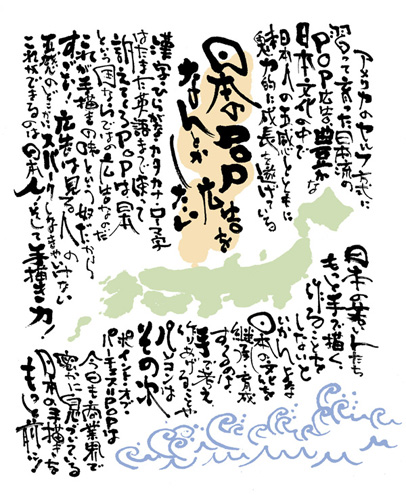 アメリカのセルフ方式に
習って育った日本流の
POP広告は豊かな
日本文化の中で
日本人の五感とともに
魅力的に成長を遂げている
日本のPOP広告を
なんとかしたい
漢字ひらがなカタカナローマ字
はたまた英語まで使って
訴えてくるPOPは、日本
という国ならではの広告なのだ
これが手描きの味という奴だから
すごい！広告は見る人の
五感のどこかにスパークしなきゃいけない
これができるのは日本人！そして手描き力！
日本の若い人たち
もっと手で描く、
作ることを
しないと
いかんよな
日本の文化を
継承し育成
するのは
手で考え
作りあげることや
パソコンは
その次
ポイント・オブ・
パーチェス＝POPは
今日も商業界で
密かに息づいている
日本の手描きを
もっと前に！